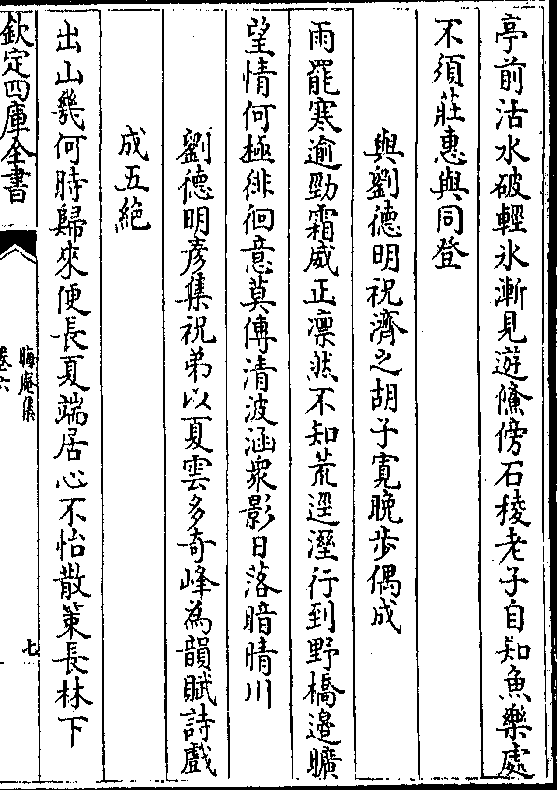 亭前沽水破輕氷漸見遊鯈傍石稜老子自知魚樂處
不須莊惠與同登
與劉德明祝濟之胡子寛晚步偶成
雨罷寒逾勁霜威正凛然不知荒逕溼行到野橋邉曠
望情何極徘徊意莫傳清波涵衆影日落暗晴川
劉德明彦集祝弟以夏雲多奇峰為韻賦詩戲
成五絶
出山幾何時歸來便長夏端居心不怡散策長林下
欽定四庫全書
晦庵集
卷六
七